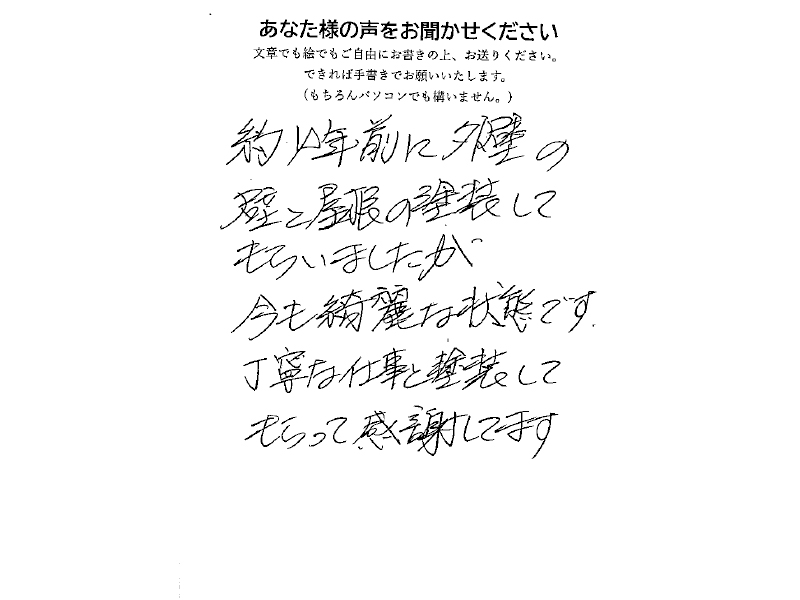 あなた様の声をお聞かせください
文章でも絵でもご自由にお書きの上、お送りください。
できれば手書きでお願いいたします。
（もちろんパソコンでも構いません。）
年前に外壁の
壁と屋根の塗装して
もらいましたが
今も綺麗な状態です.
丁寧な仕事と塗装して
もらって感謝してます